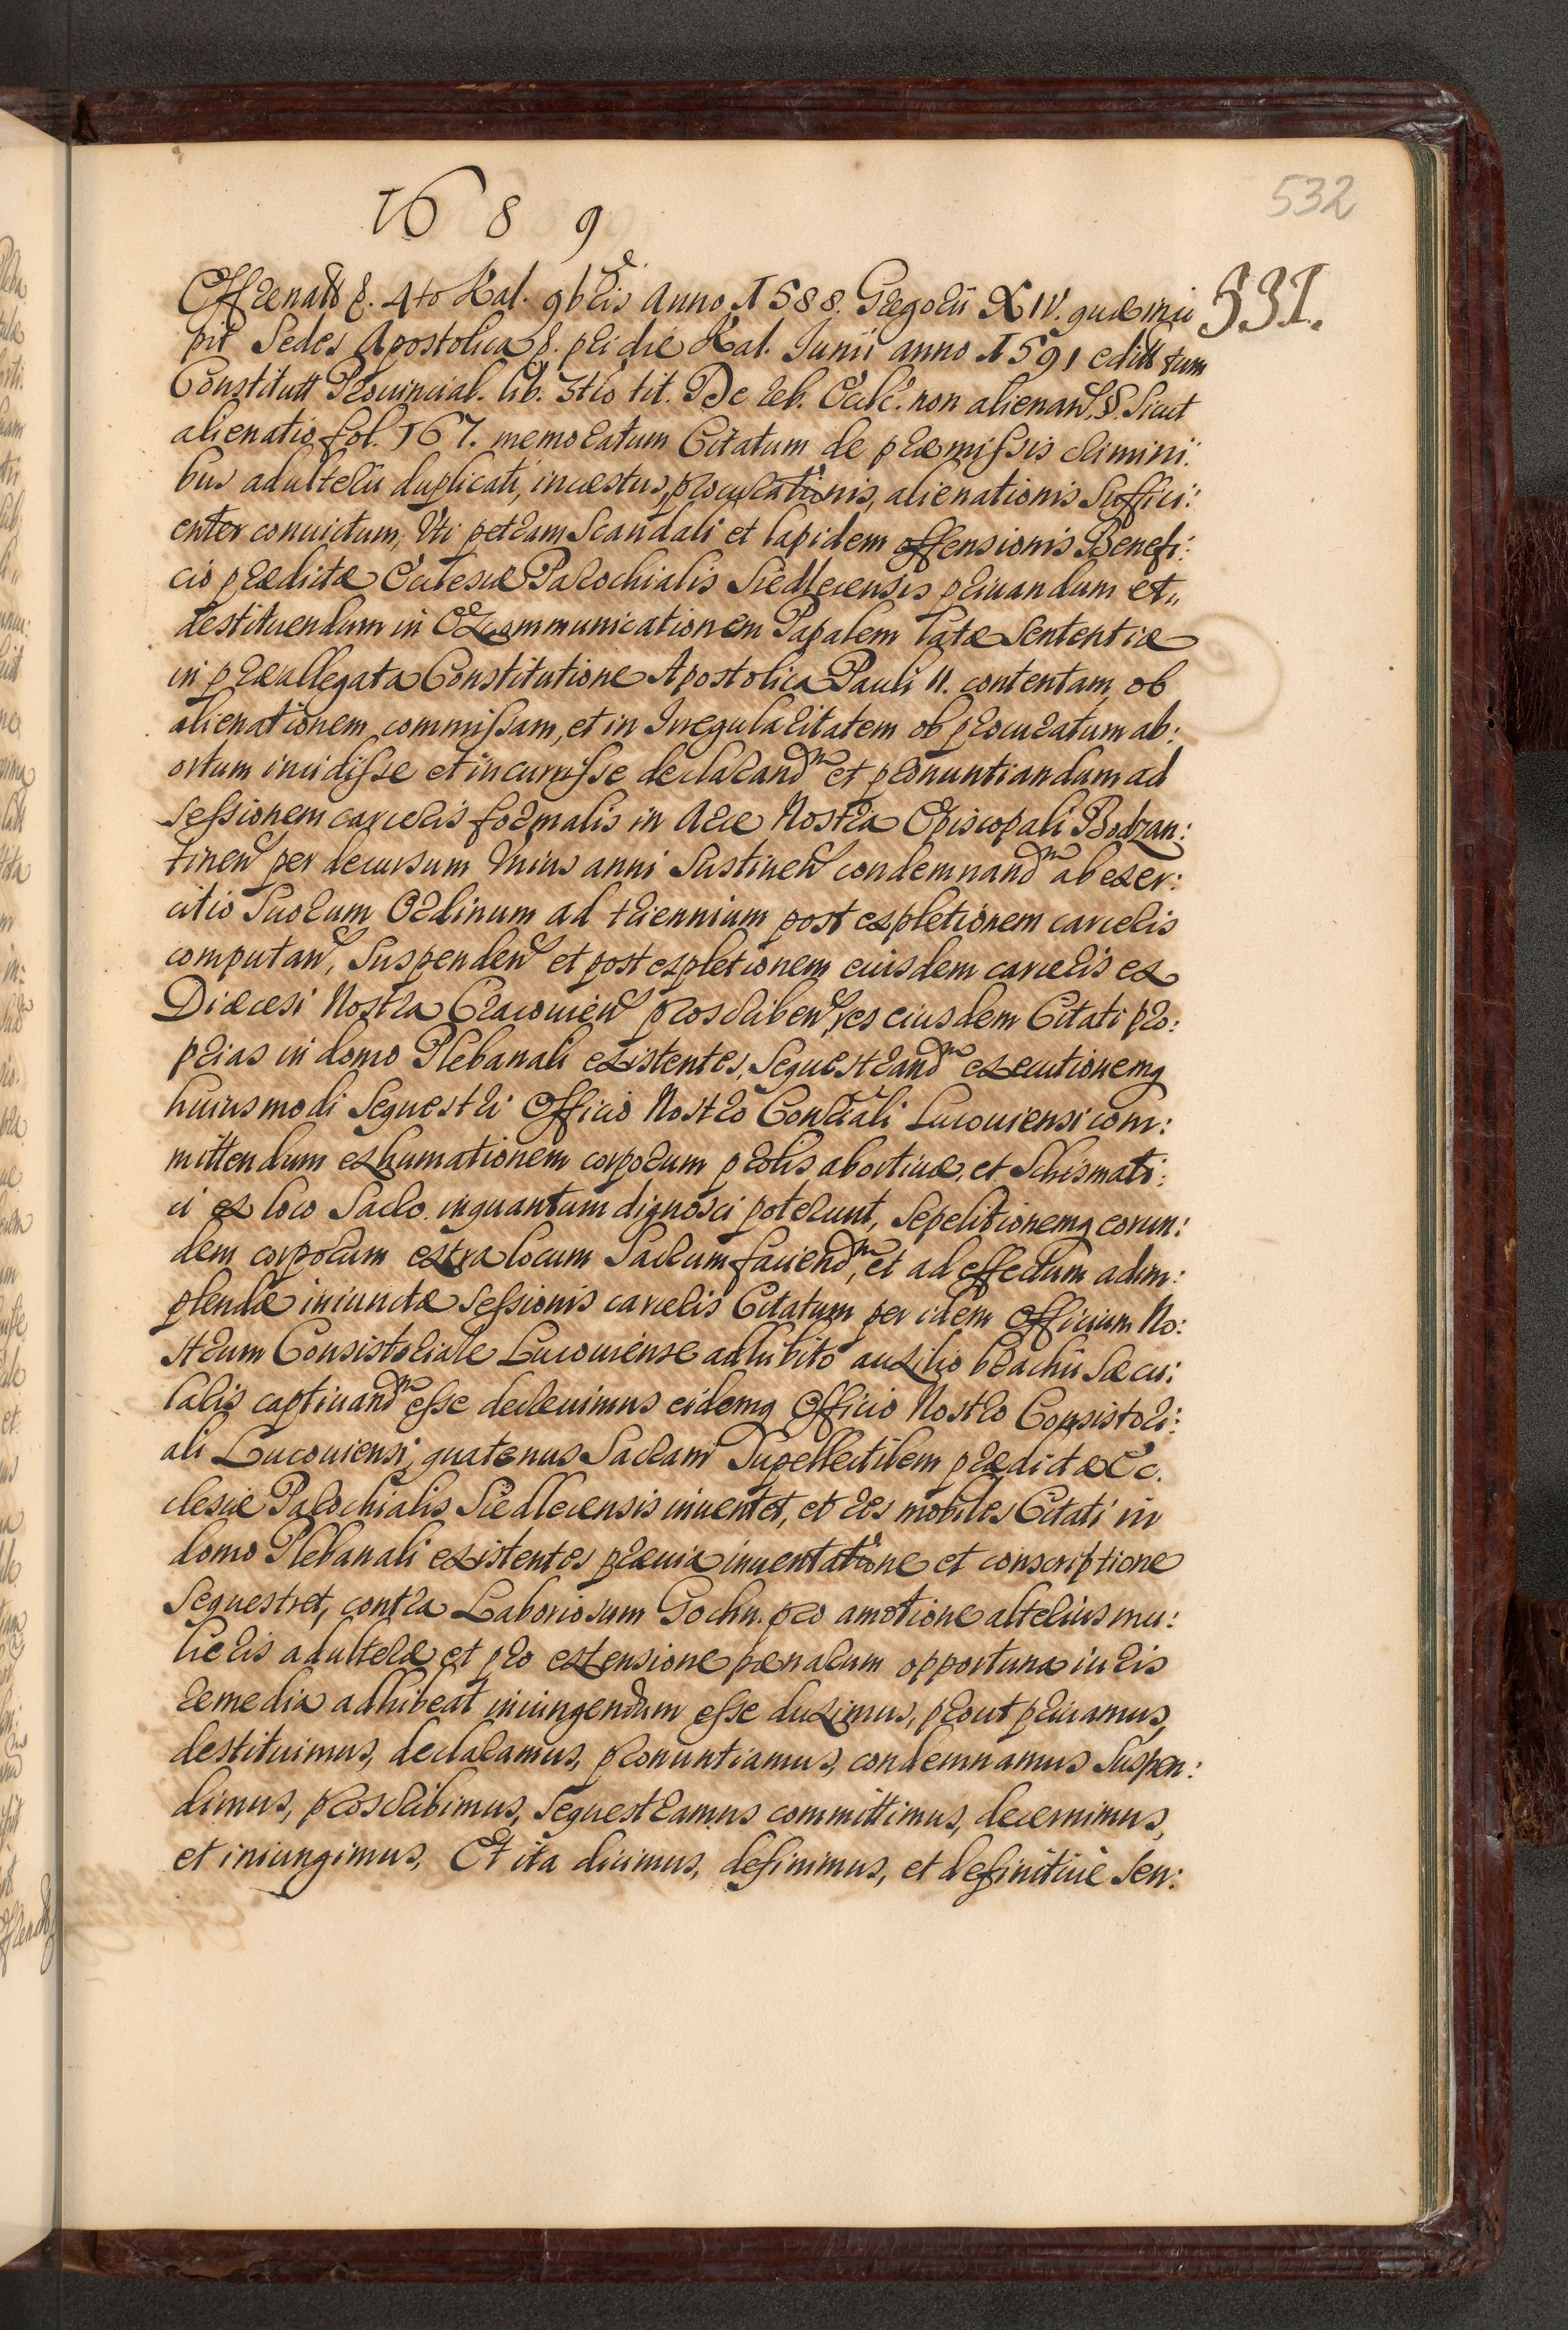 532
1689
531.
Effrenatã p. 4to Kal. 9bris Anno 1588. Gregorii XIV. quæ inci
pit Sedes Apostolica p. pridie Kal. Junii anno 1591 editt tum
Constitutt Provincial. lib. 3tio tit. De reb. Eccl. non alienan. §. Sicut
alienatio fol. 167. memoratum Citatum de præmissis crimini:
bus adulterii duplicati, incestus, procurationis, alienationis Suffici:
enter convictum, Vti petram Scandali et lapidem offensionis Benefi:
cio prædictæ Ecclesiæ Parochialis Siedlecensis privandum et„
destituendum in Excommunicationem Papalem latæ Sententiæ
in præallegata Constitutione Apostolica Pauli II. contentam, ob
alienationem commissam, et in Irregularitatem ob procuratum ab:
ortum incidisse et incurrisse declarandm et pronuntiandum ad
Sessionem carceris formalis in Arce Nostra Episcopali Bodzan:
tinen per decursum Unius anni Sustinen condemnandm ab exer:
citio Sacrorum Ordinum ad triennium post expletionem carceris
computan, Suspenden et post expletionem eiusdem carceris ex
Diæcesi Nostra Cracovien proscriben, res eiusdem Citati pro:
prias in domo Plebanali existentes, Sequestrandm executionemq
huiusmodi Sequestri Officio Nostro Consriali Lucoviensi com:
mittendum exhumationem corporum prolis abortivæ, et Schismati:
ci ex loco Sacro. inquantum dignosci poterunt, Sepelitionemq eorun:
dem corporum extra locum Sacrum faciendm, et ad effectum adim:
plendæ iniunctæ Sessionis carceris Citatum per idem Officium No:
strum Consistoriale Lucoviense adhibito auxilio brachii Sæcu:
laris captivandm esse decrevimus eidemq Officio Nostro Consistori:
ali Lucoviensi, quatenus Sacram Supellectilem prædictæ Ec.
clesiæ Parochialis Siedlecensis inventet, et res mobiles Citati in
domo Plebanali existentes prævia inventatione et conscriptione
Sequestret, contra Laboriosum Gochn. pro amotione alterius mu:
lieris adulteræ et pro extensione pænarum opportuna iuris
remedia adhibeat iniungendum esse duximus, prout privamus,
destituimus, declaramus, pronuntiamus, condemnamus Suspen:
dimus, proscribimus, Sequestramus committimus, decernimus,
et iniungimus, Et ita dicimus, definimus, et definitive Sen: